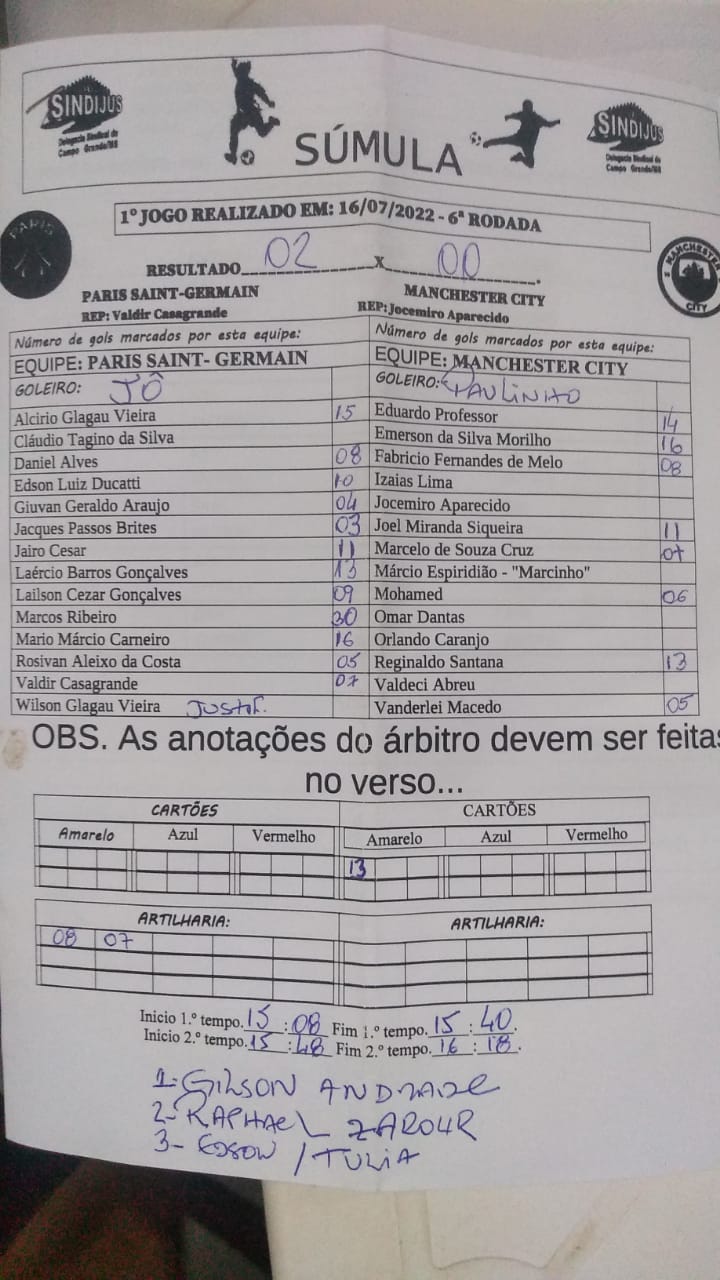 SINDIJUS
Delegacia Sindical de
Campo Grande/MS
SÚMULA
SINDIJUS
Delegacia Sindical de
Campo Grande/MS
PARIS
1º JOGO REALIZADO EM: 16/07/2022 - 6ª RODADA
MANCHESTER
CITY
RESULTADO 02 X 00.
PARIS SAINT-GERMAIN MANCHESTER CITY
REP: Valdir Casagrande REP: Jocemiro Aparecido
Número de gols marcados por esta equipe: Número de gols marcados por esta equipe:
EQUIPE: PARIS SAINT- GERMAIN EQUIPE: MANCHESTER CITY
GOLEIRO: JÔ GOLEIRO: PAULINHO
Alcirio Glagau Vieira 15 Eduardo Professor 14
Cláudio Tagino da Silva Emerson da Silva Morilho 16
Daniel Alves 08 Fabricio Fernandes de Melo 08
Edson Luiz Ducatti 10 Izaias Lima
Giuvan Geraldo Araujo 04 Jocemiro Aparecido
Jacques Passos Brites 03 Joel Miranda Siqueira 11
Jairo Cesar 11 Marcelo de Souza Cruz 07
Laércio Barros Gonçalves 13 Márcio Espiridião - "Marcinho"
Lailson Cezar Gonçalves 09 Mohamed 06
Marcos Ribeiro 30 Omar Dantas
Mario Márcio Carneiro 16 Orlando Caranjo
Rosivan Aleixo da Costa 05 Reginaldo Santana 13
Valdir Casagrande 07 Valdeci Abreu
Wilson Glagau Vieira Justif. Vanderlei Macedo 05
OBS. As anotações do árbitro devem ser feitas
no verso...
CARTÕES CARTÕES
Amarelo Azul Vermelho Amarelo Azul Vermelho
13
ARTILHARIA: ARTILHARIA:
08 07
Inicio 1.º tempo. 15 : 08 Fim 1.º tempo. 15 : 40.
Inicio 2.º tempo. 15 : 48 Fim 2.º tempo. 16 : 18.
1- GILSON ANDRADE
2- RAPHAEL ZAROUR
3- EDSON / TULIA